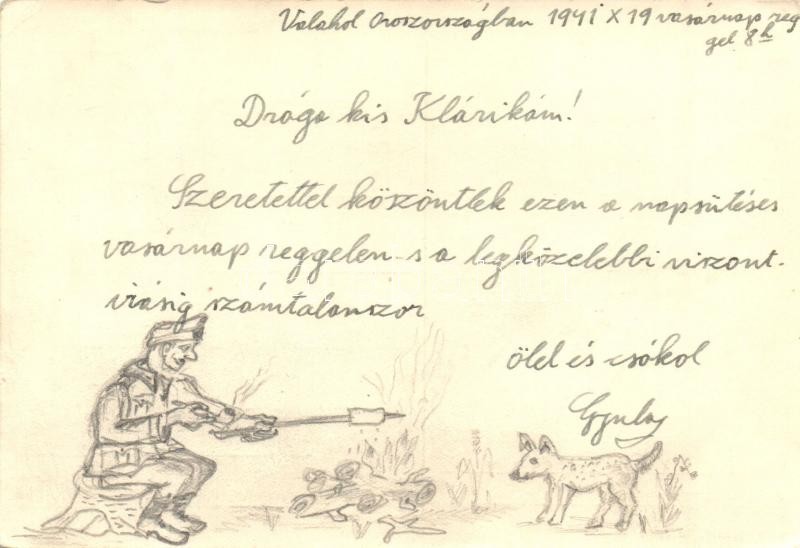 Valahol Oroszországban 1941 X 19 vasárnap reg
gel 8h
Drága kis Klárikám!
Szeretettel köszöntlek ezen a napsütéses
vasárnap reggelen s a legközelebbi viszont-
látásig számtalanszor
ölel és csókol
Gyula